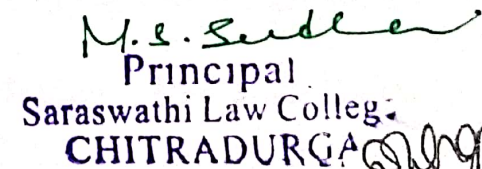 M.S. Sudha
Principal
Saraswathi Law College
CHITRADURGA